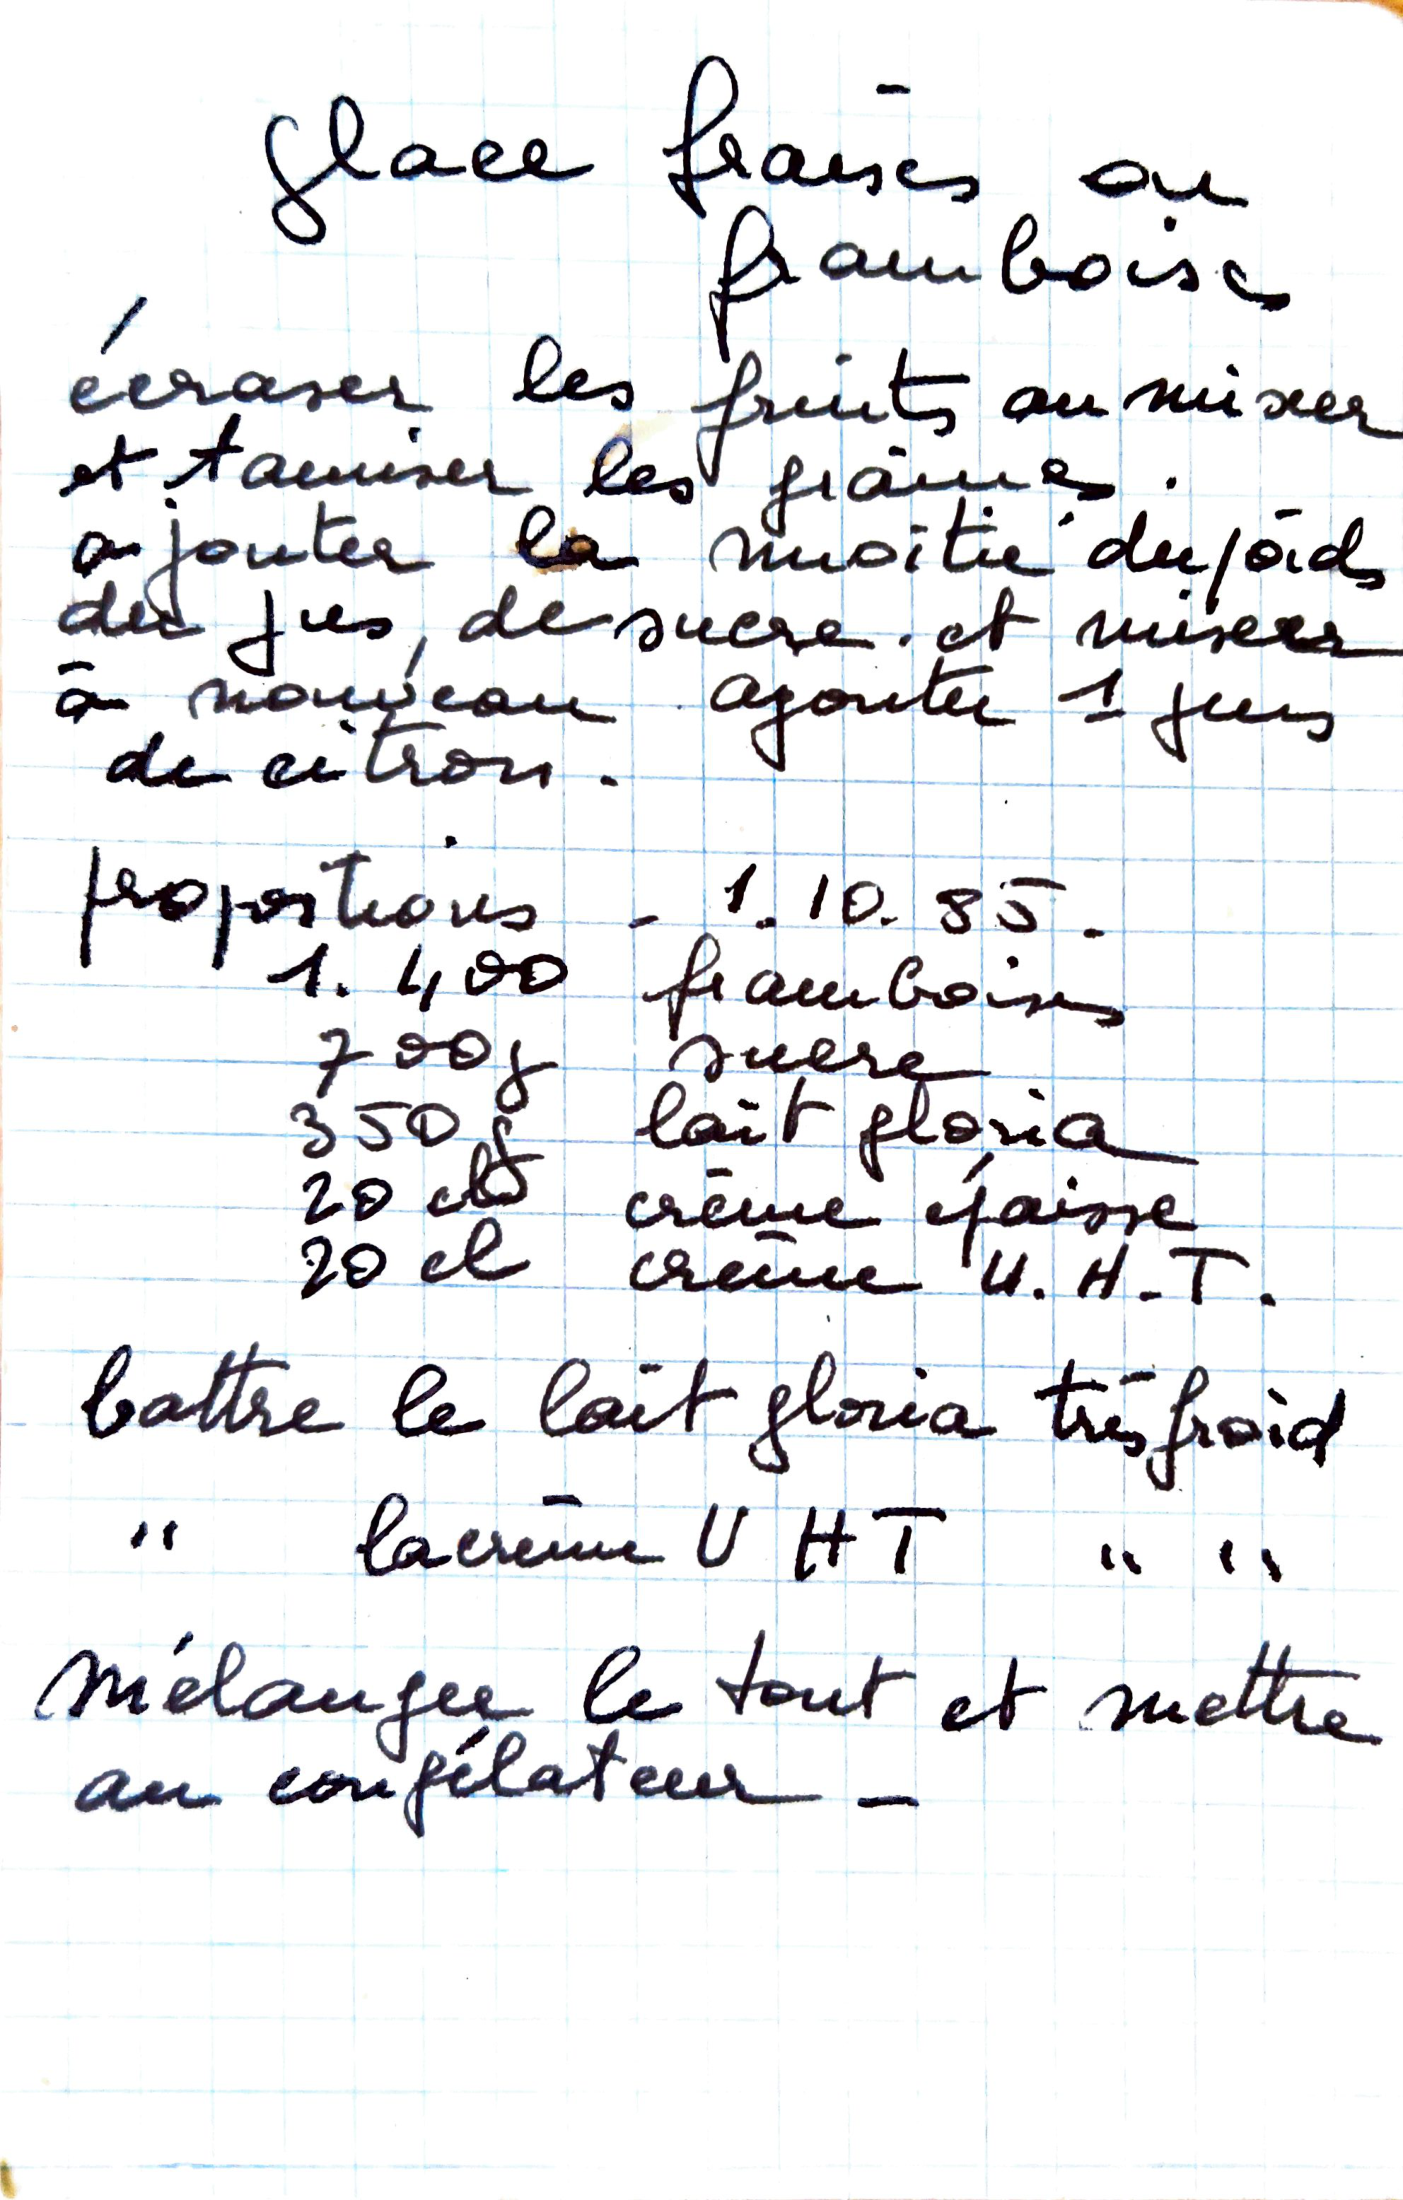 glace fraises ou
framboises
écraser les fruits au mixer
et tamiser les graines.
ajouter la moitié du poids
du jus, de sucre. et mixer
à nouveau. ajouter 1 jus
de citron.
proportions - 1.10.85.
1.400 framboises
700g sucre
350g lait gloria
20 cl crème épaisse
20 cl crème U.H.T.
battre le lait gloria très froid
" la crème UHT " "
Mélanger le tout et mettre
au congélateur -